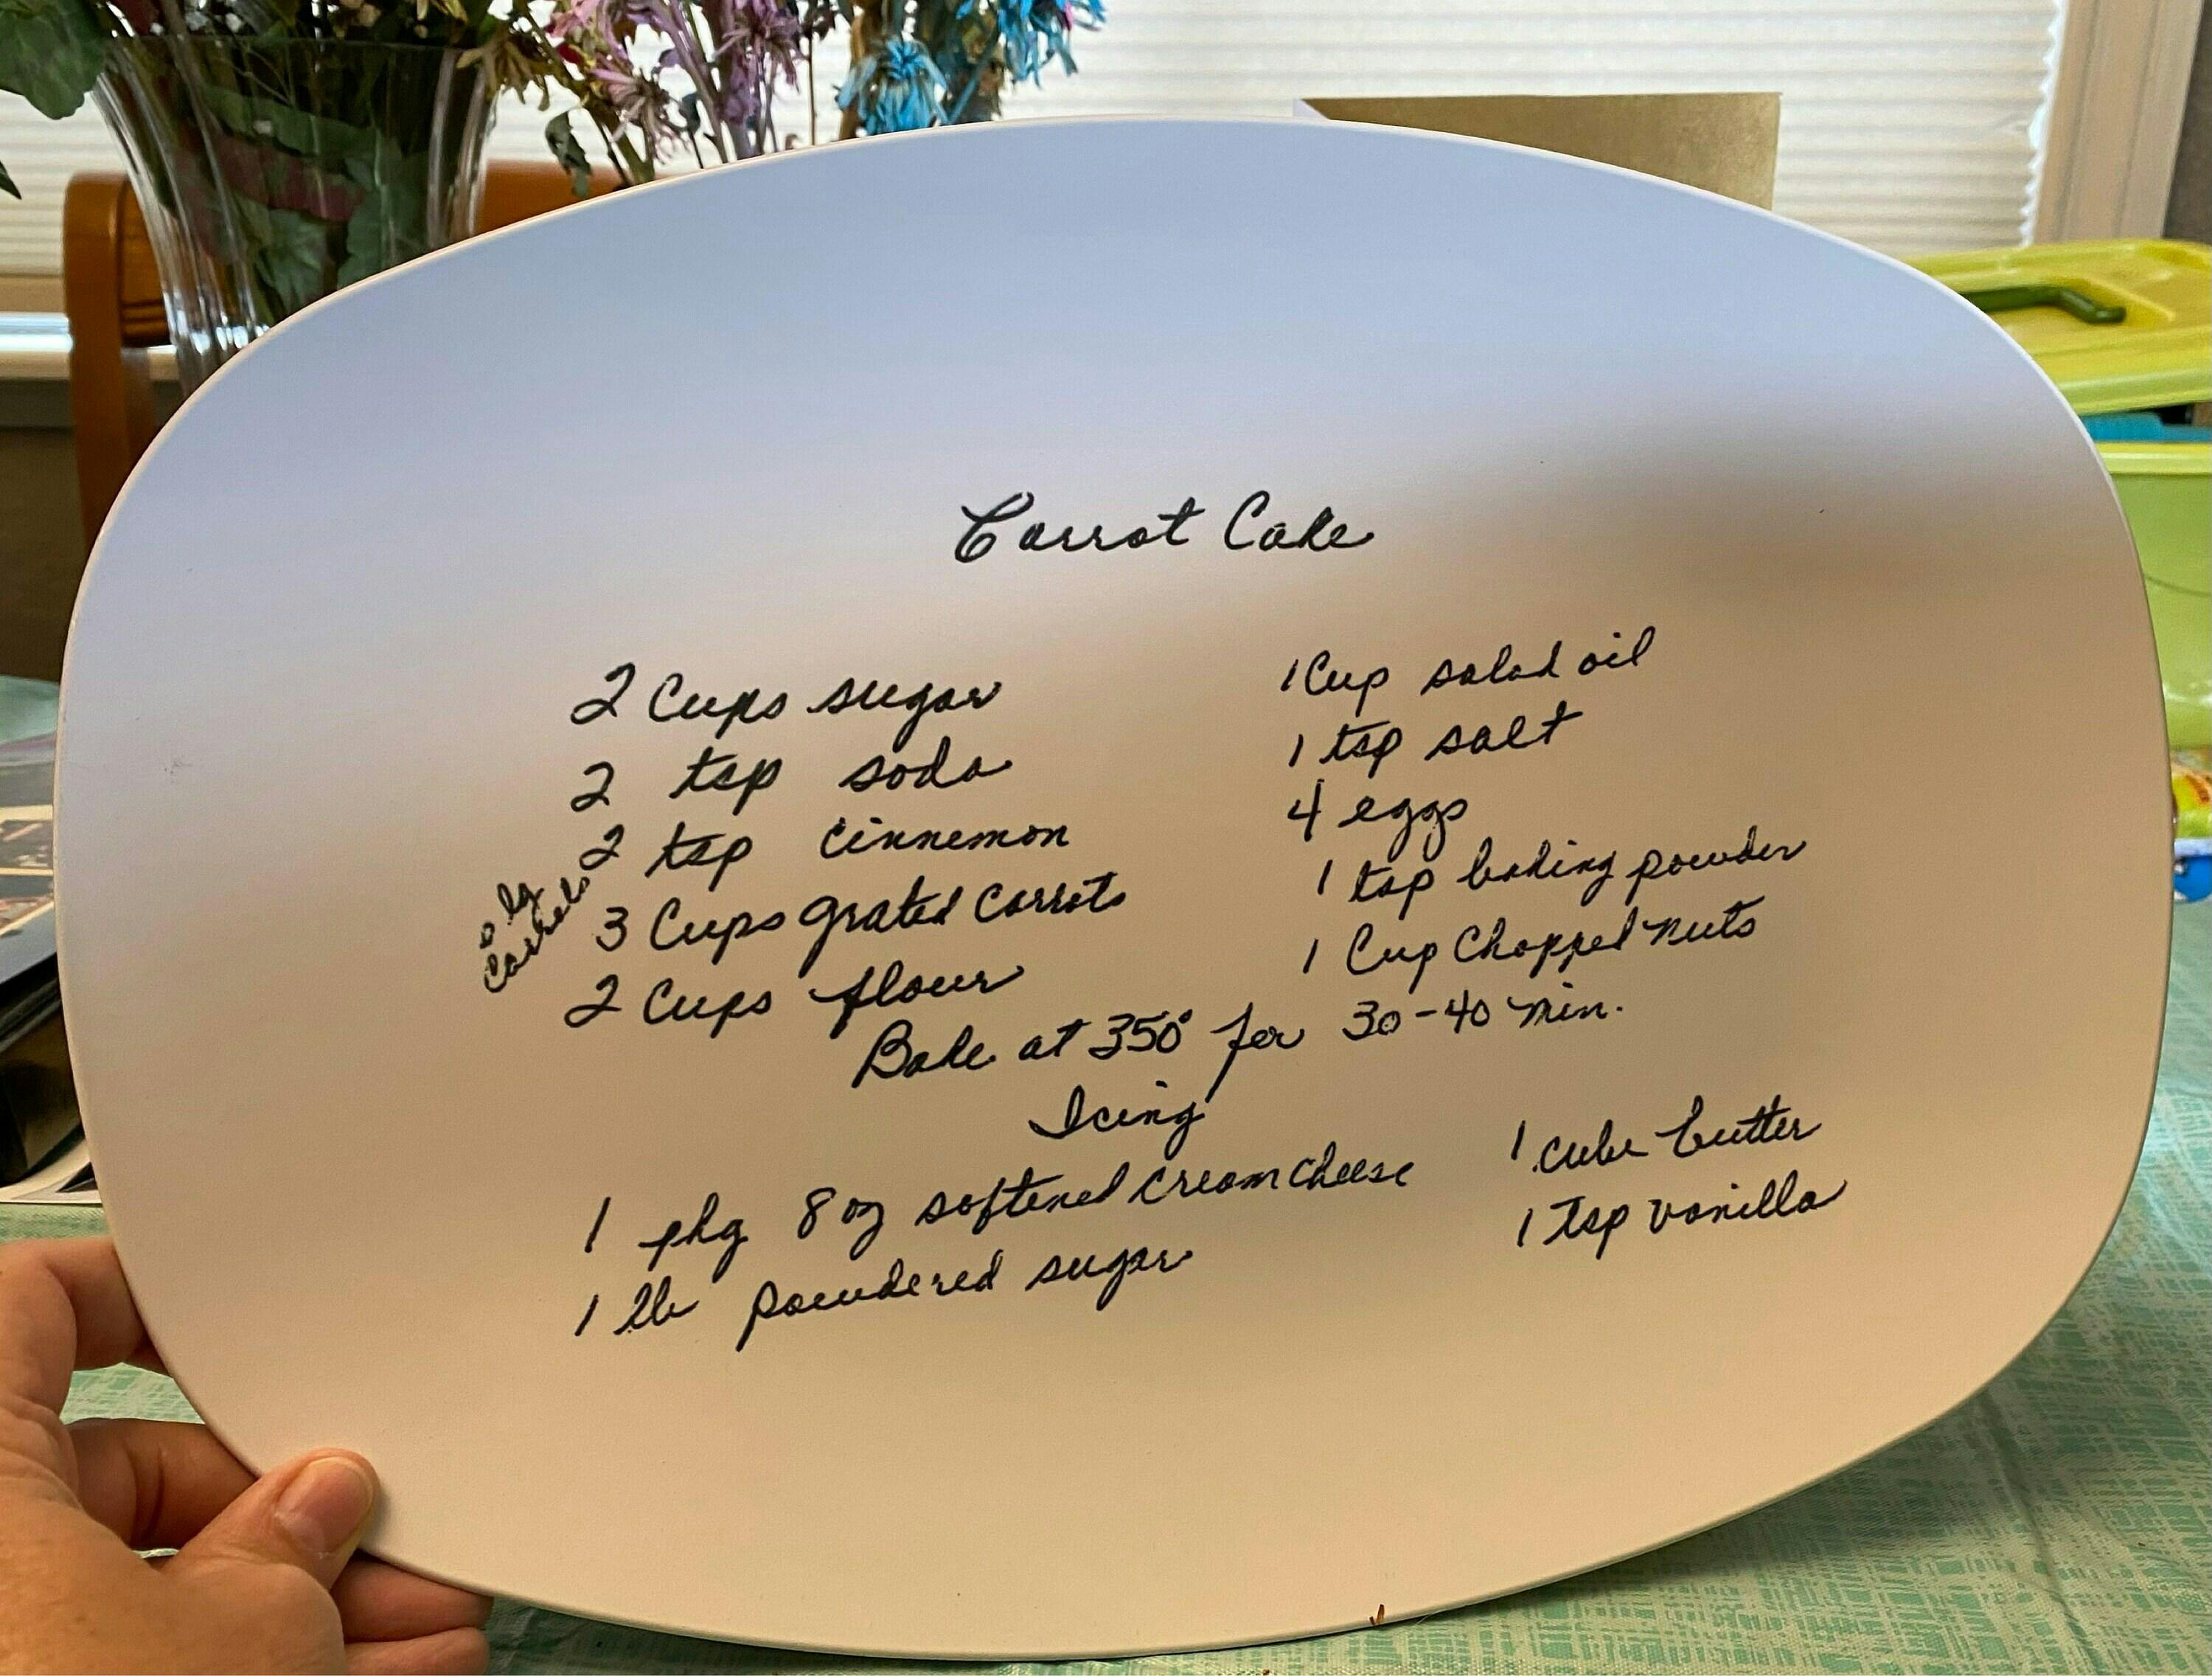 Carrot Cake
2 Cups sugar
2 tsp soda
2 tsp cinnemon
lg
carrots
3 Cups grated carrots
2 Cups flour
1 Cup salad oil
1 tsp salt
4 eggs
1 tsp baking powder
1 Cup Chopped nuts
Bake at 350° for 30-40 min.
Icing
1 pkg 8 oz softened cream cheese
1 lb powdered sugar
1 cube butter
1 tsp vanilla